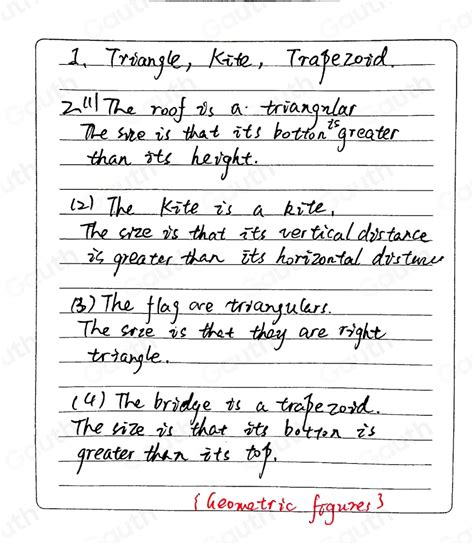 1. Triangle, Kite, Trapezoid.
2 (1) The roof is a triangular
The size is that its botton is greater
than its height.
(2) The Kite is a kite,
The size is that its vertical distance
is greater than its horizontal distance
(3) The flag are triangulars.
The size is that they are right
triangle.
(4) The bridge is a trapezoid.
The size is that its botton is
greater than its top.
{Geometric figures}